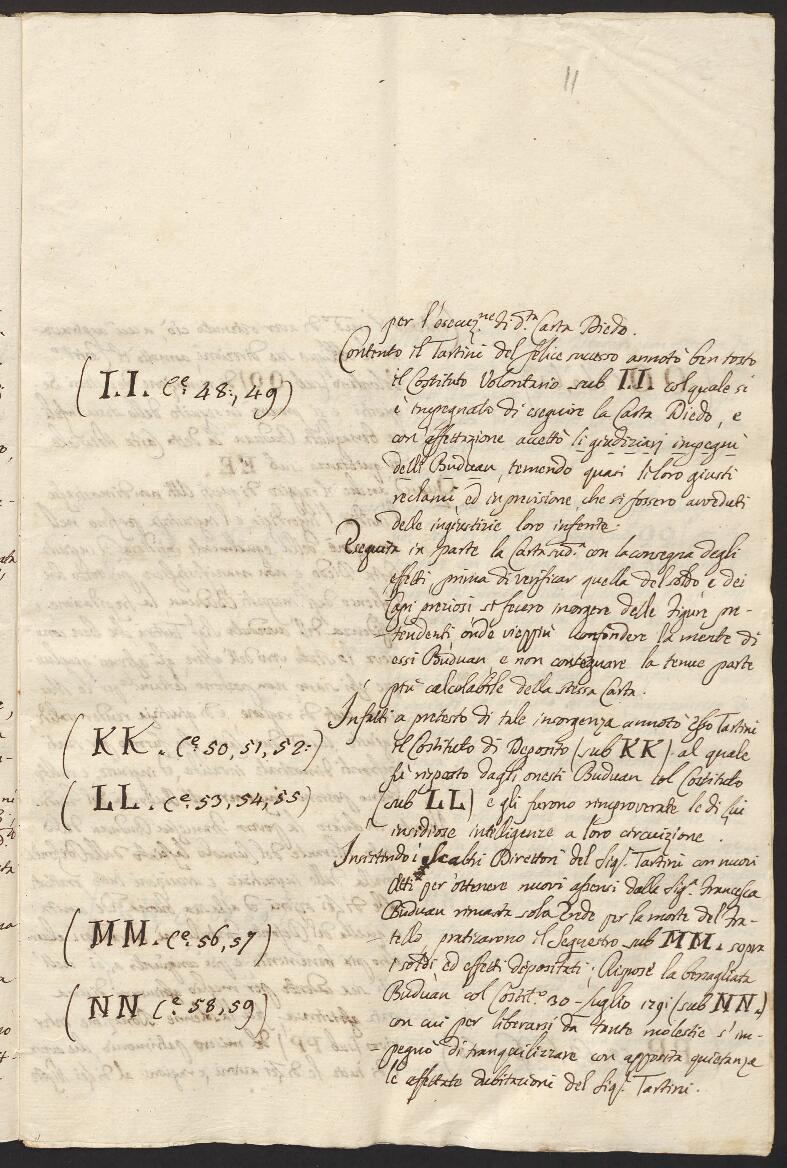 11
per l'esecuz.ne di d.ta Carta Diedo.
Contento il Tartini del felice successo annotò ben tosto
(I.I. C.e 48:, 49)
il Costituto Volontario sub I.I. col quale si
è impegnato di eseguire la Carta Diedo, e
con affettazione accettò li giudiziarj ingegni
delli Buduan, temendo quasi li loro giusti
reclami ed in previsione che si fossero avveduti
delle ingiustizie loro inferite:
Eseguita in parte la Carta sud.a con la consegna degli
effetti, prima di verificar quella del soldo e dei
Capi preziosi si fecero insorgere delle figure pre-
-tendenti onde vieppiù confondere la mente di
essi Buduan, e non conseguare la tenue parte
più calcolabile della stessa Carta.
Infatti a pretesto di tale insorgenza annotò esso Tartini
(KK. C.e 50, 51, 52:)
il Costituto di Deposito (sub KK) al quale
fù risposto dagli onesti Buduan col Costituto
(LL. C.e 53, 54, 55)
(sub LL) e gli furono rimproverate le di lui
insidiose intelligenze a loro circuizione.
Insistendo i scaltri Direttori del Sig.r Tartini con nuovi
Atti per ottenere nuovi assensi dalla Sig.a Francesca
Buduan rimasta sola Erede per la morte del Fra-
(MM. C.e 56, 57)
-tello, praticarono il Sequestro sub MM. sopra
i soldi ed effetti depositati; Rispose la bersagliata
(NN C.e 58, 59)
Buduan col Costit.o 30 Luglio 1791 (sub NN.)
con cui per liberarsi da tante molestie s'im-
-pegnò di tranquilizzare con apposita quietanza
le affettate dubitazioni del Sig.r Tartini.